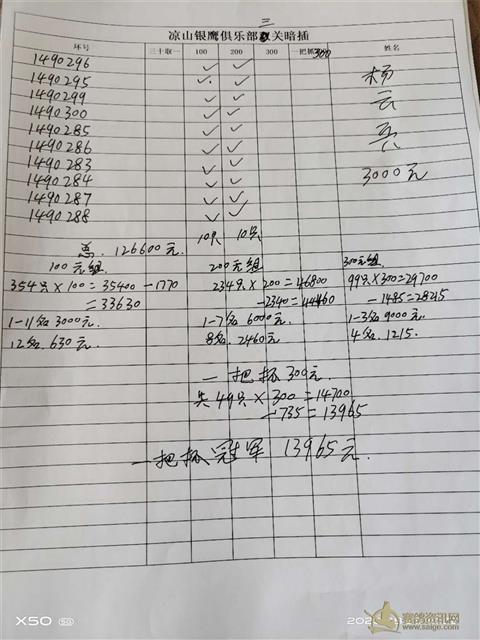 三
凉山银鹰俱乐部关暗插
环号 三十取一 100 200 300 一把抓300 姓名
1490296 ✓ ✓
1490295 ✓ ✓ 杨
1490299 ✓ ✓ 云
1490300 ✓ ✓
1490285 ✓ ✓
1490286 ✓ ✓
1490283 ✓ ✓ 3000元
1490284 ✓ ✓
1490287 ✓ ✓
1490288 ✓ ✓
10只 10只
总. 126600元.
100元组 200元组 300元组
354只×100=35400-1770 234只×200=46800 99只×300=29700
=33630 -2340=44460 -1485=28215
1-11名 3000元. 1-7名 6000元. 1-3名 9000元.
12名. 630元 8名. 2460元. 4名. 1215.
一把抓300元.
共49只×300=14700
-735=13965
一把抓冠军 13965元.
X50 5G
赛鸽资讯网
www.saige.com